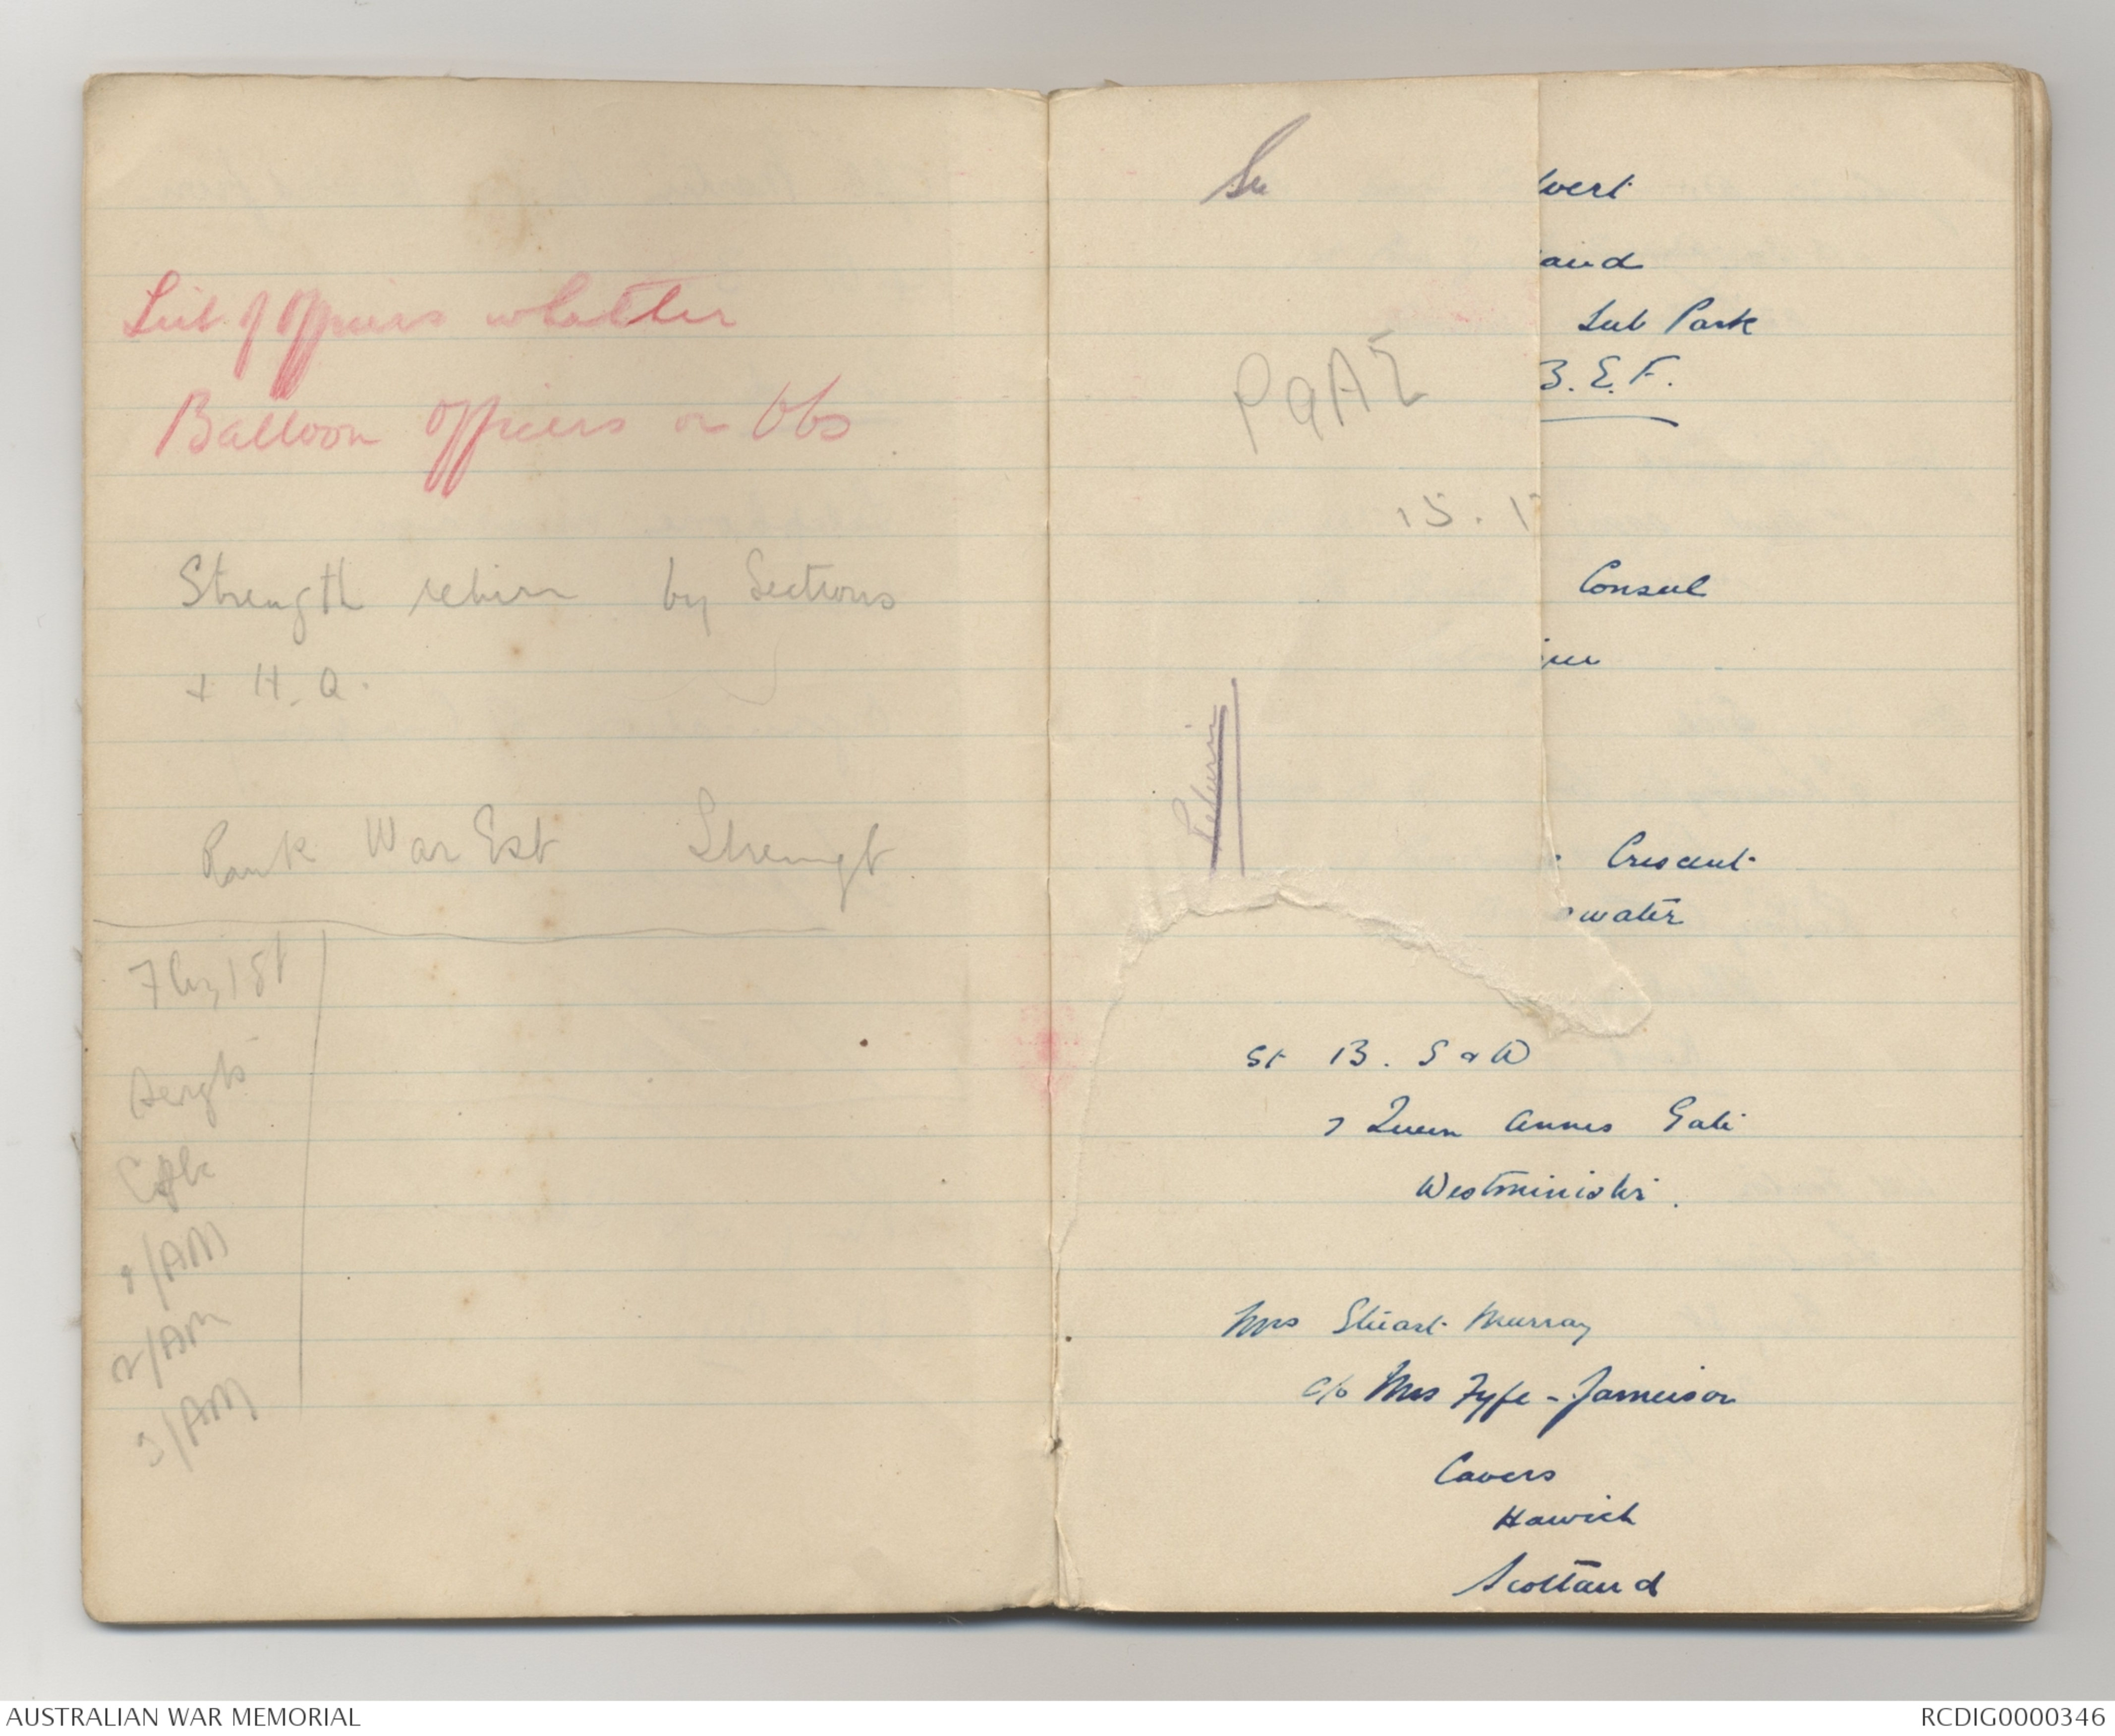 List of Officers whether
Balloon Officers or Obs
Strength return by Sections
+ H.Q.
Rank War Est Strengt
Sergts
1/AM
2/AM
3/AM
vert
and
Sub Park
B.E.F.
15.1
Consul
Crescent
water
St B. S & D
7 Queen Annes Gate
Westminister.
Mrs Stuart Murray
c/o Mrs Fyfe-Jameison
Cavers
Hawick
Scotland
AUSTRALIAN WAR MEMORIAL
RCDIG0000346